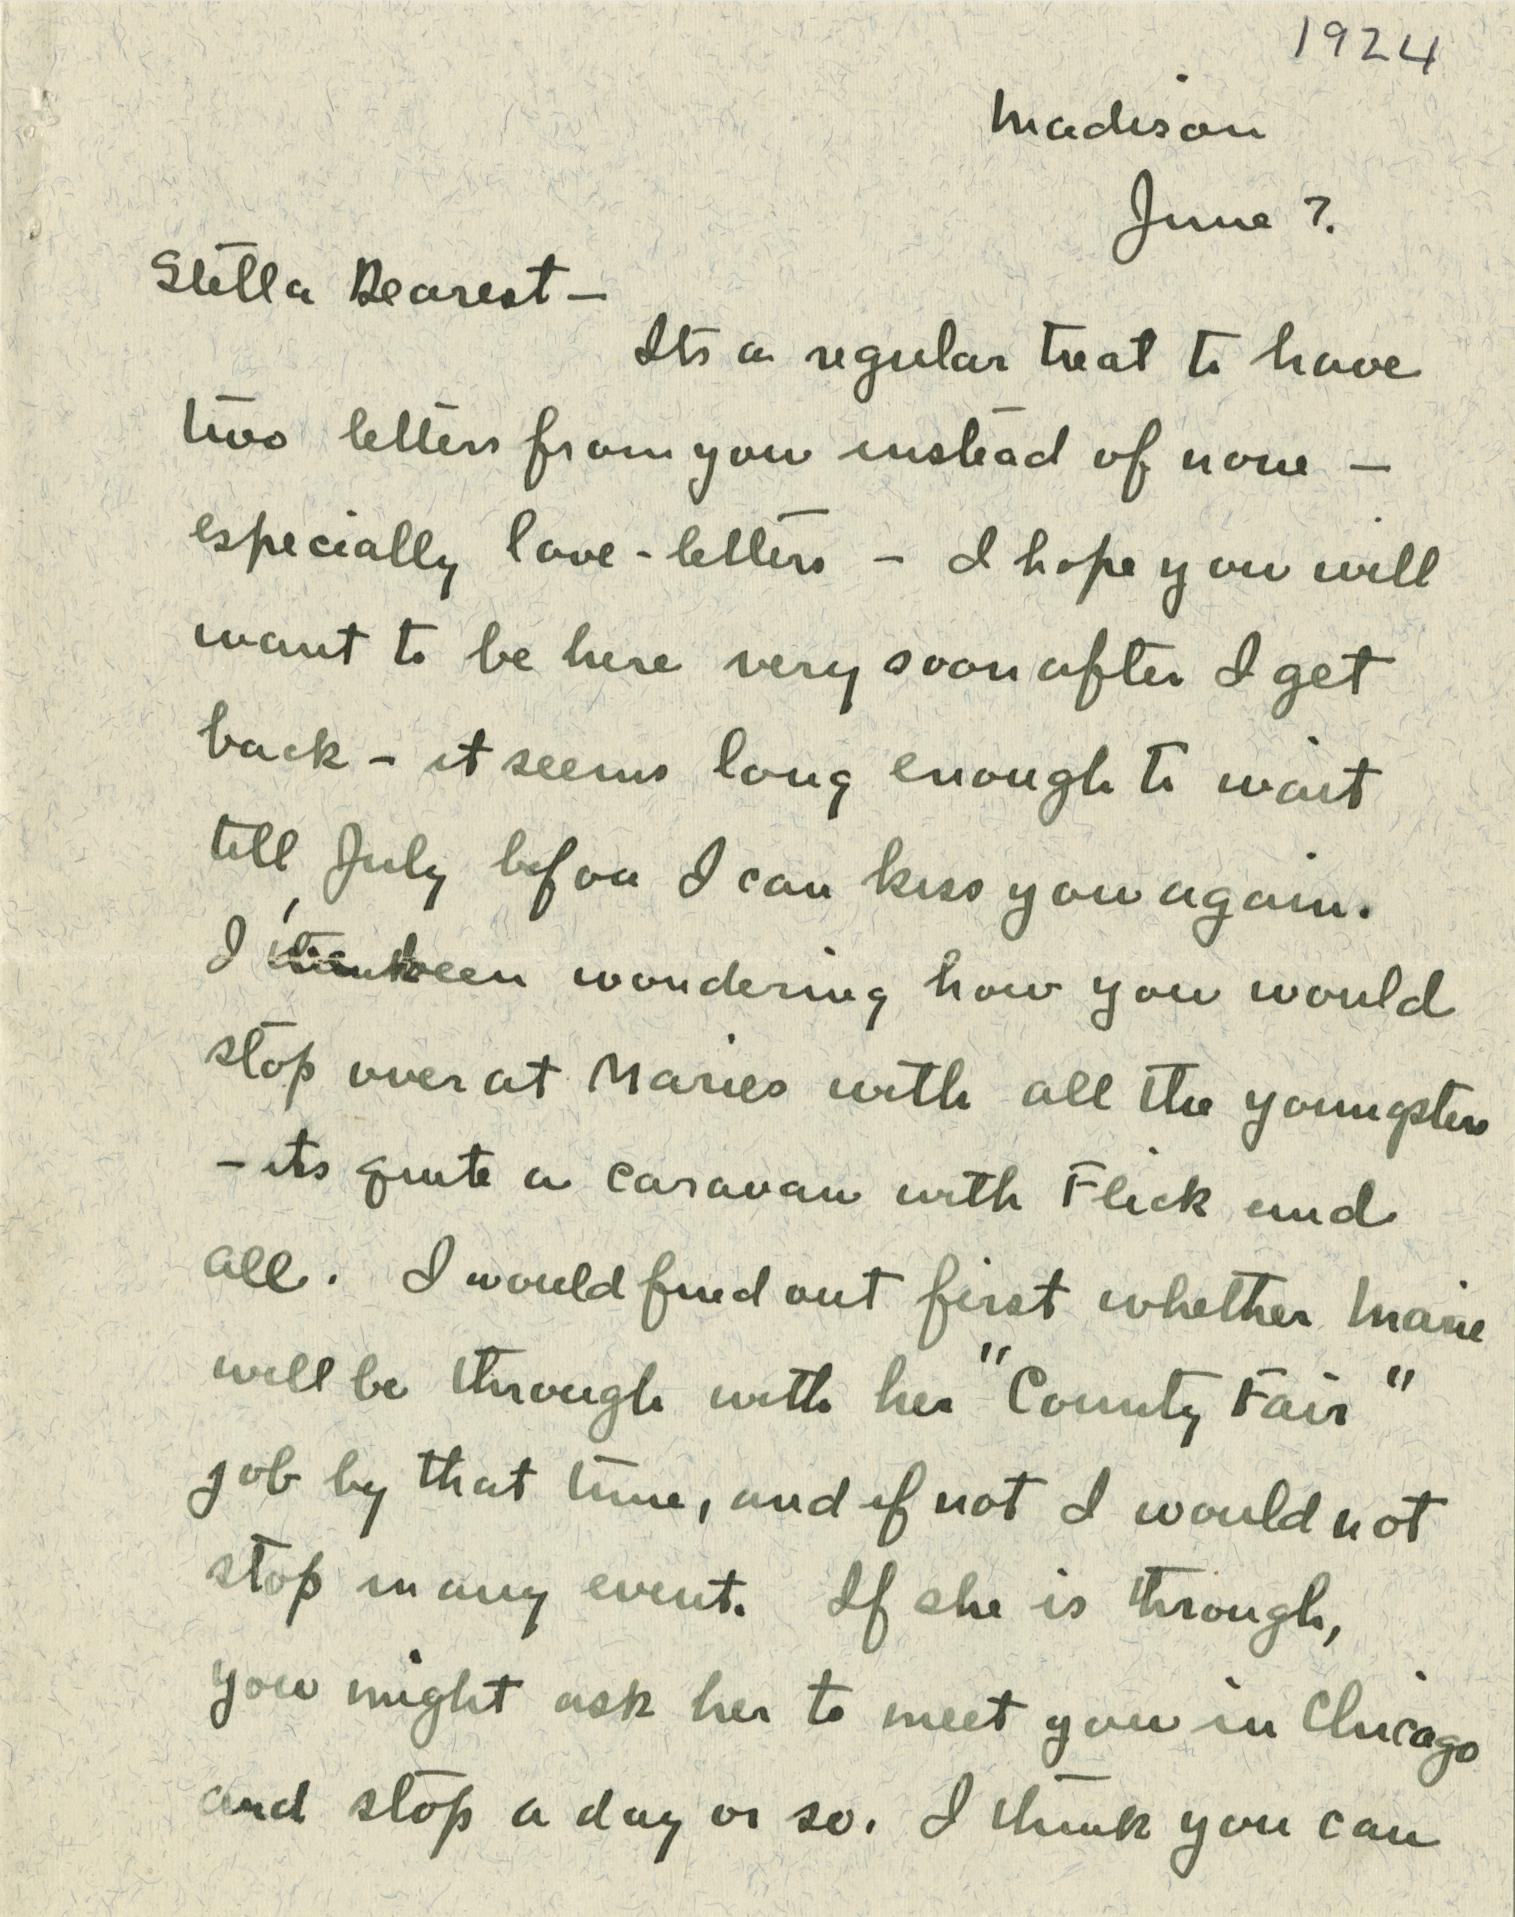 1924
Madison
June 7.
Stella Dearest –
Its a regular treat to have
two letters from you instead of none –
especially love-letters – I hope you will
want to be here very soon after I get
back – it seems long enough to wait
till July before I can kiss you again.
I been wondering how you would
stop over at Maries with all the youngsters
– its quite a caravan with Flick and
all. I would find out first whether Marie
will be through with her "County Fair"
job by that time, and if not I would not
stop in any event. If she is through,
you might ask her to meet you in Chicago
and stop a day or so. I think you can